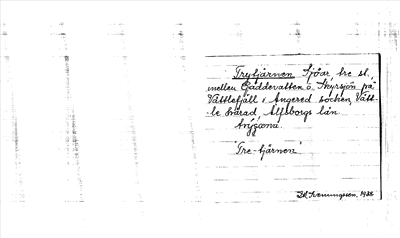 Trytjärnen Sjöar, tre st.,
mellan Gäddevatten o. Skyrsjön på
Vättlefjäll i Angered socken, Vätt-
le härad, Älfsborgs län.
"Tre-tjärnen"
1922